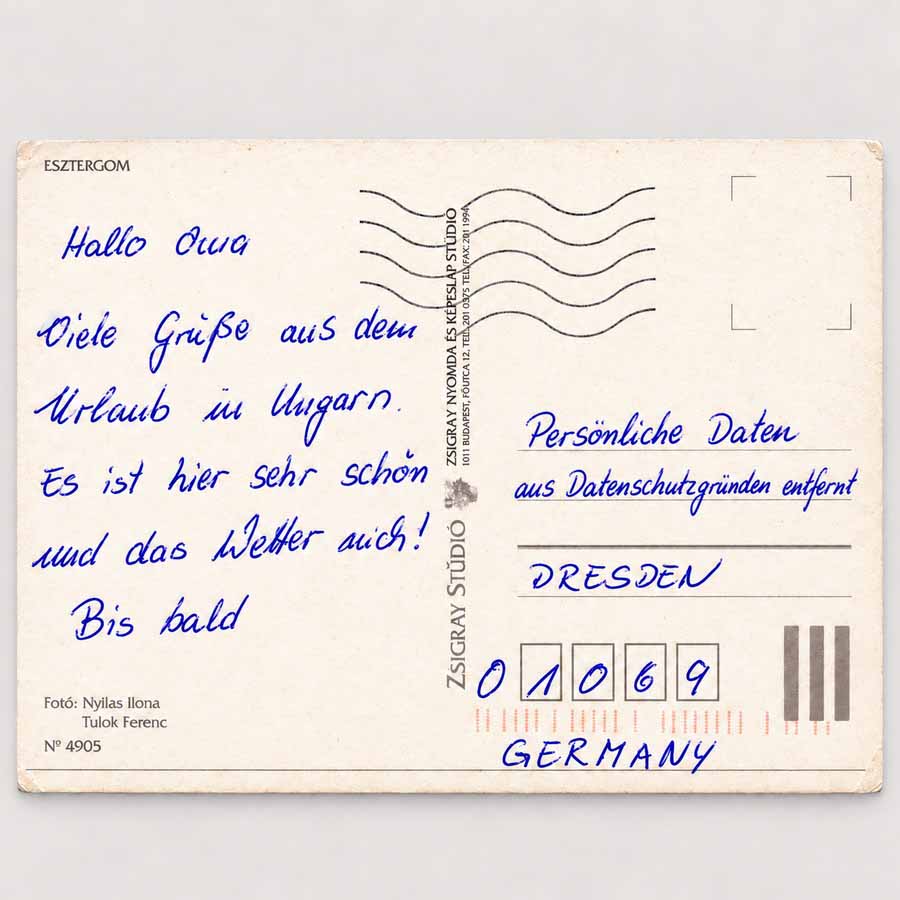 ESZTERGOM
Hallo Oma
Viele Grüße aus dem
Urlaub in Ungarn.
Es ist hier sehr schön
und das Wetter auch!
Bis bald
Fotó: Nyilas Ilona
Tulok Ferenc
Nº 4905
ZSIGRAY STÚDIÓ
ZSIGRAY NYOMDA ÉS KÉPESLAP STÚDIÓ
1011 BUDAPEST, FŐUTCA 12. TEL.: 201 0375 TEL./FAX: 201 1994
Persönliche Daten
aus Datenschutzgründen entfernt
DRESDEN
01069
GERMANY